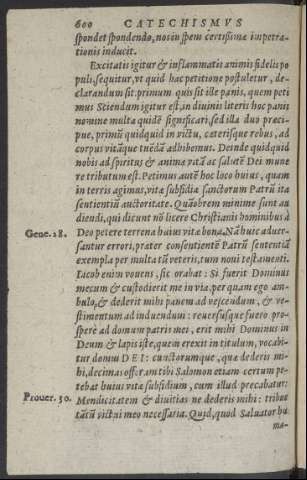 600 CATECHISMVS
spondet spondendo, nos in spem certissimæ impetra-
tionis inducit.
Excitatis igitur & inflammatis animis fidelis po
puli, sequitur, vt quid hac petitione postuletur, de-
clarandum sit: primum quis sit ille panis, quem peti
mus Sciendum igitur est, in diuinis literis hoc panis
nomine multa quidē significari, sed illa duo præci-
pue, primū quidquid in victu, cæterisque rebus, ad
corpus vitāque tuēdā adhibemus. Deinde quidquid
nobis ad spiritus & animæ vitā ac salutē Dei mune
re tributum est. Petimus autē hoc loco huius, quam
in terris agimus, vitæ subsidia sanctorum Patrū ita
sentientiū auctoritate. Quāobrem minime sunt au
diendi, qui dicunt nō licere Christianis hominibus à
Gene. 28. Deo petere terrena huius vitæ bona. Nā huic aduer-
santur errori, præter consentientē Patrū sententiā
exempla per multa tū veteris, tum noui testamenti.
Iacob enim vouens, sic orabat: Si fuerit Dominus
mecum & custodierit me in via, per quam ego am-
bulo, & dederit mihi panem ad vescendum, & ve-
stimentum ad induendum: reuersusque fuero pro-
sperè ad domum patris mei, erit mihi Dominus in
Deum & lapis iste, quem erexit in titulum, vocabi-
tur domus DEI: cunctorumque, quæ dederis mi-
hi, decimas offeram tibi Salomon etiam certum pe-
tebat huius vitæ subsidium, cum illud precabatur:
Prouer. 30. Mendicitatem & diuitias ne dederis mihi: tribue
tātū victui meo necessaria. Quid, quod Saluator hu
ma-